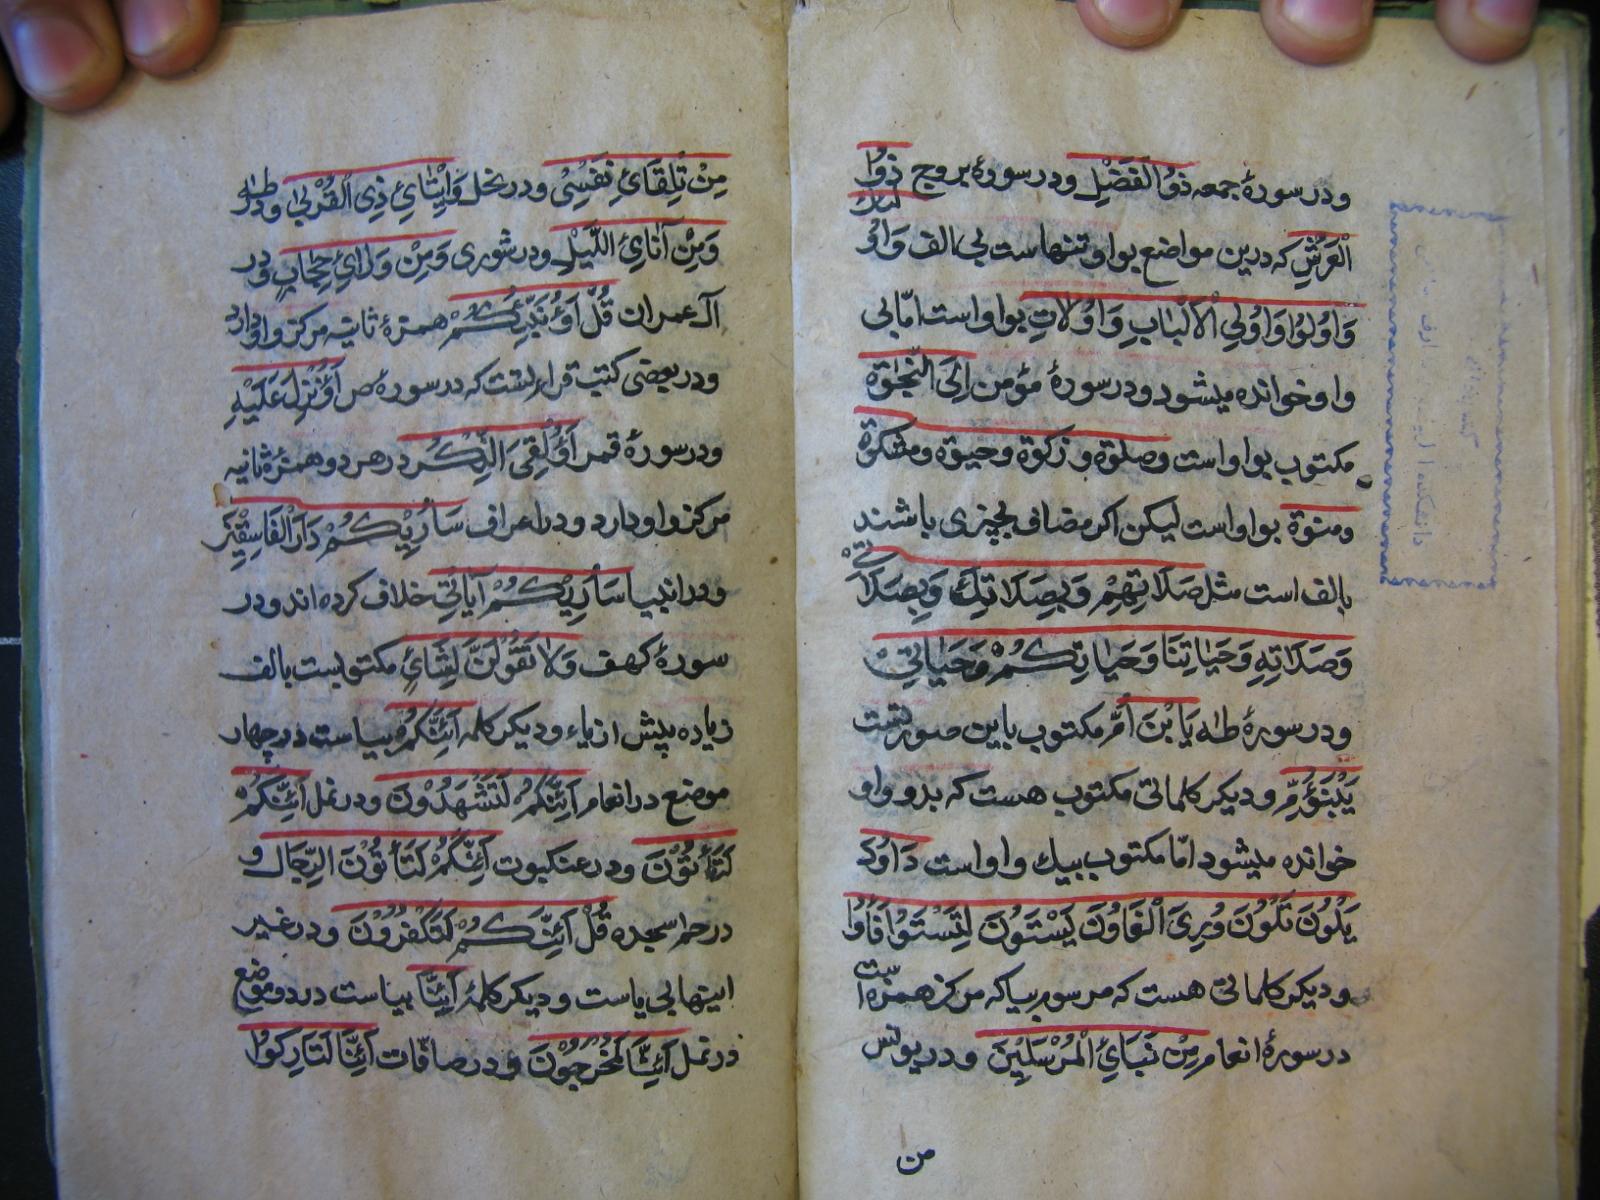 ودر سورهٔ جمعه ذُوُ الْفَضْلِ ودر سورهٔ بروج ذُوا
الْعَرْشِ که درین مواضع بواو تنهاست بی الف وَاوُ لئك
وَاُولُوا وَاُولِي الْاَلْبَابِ وَاُولَاتِ بواو است امّا بی
واو خوانده میشود ودر سورهٔ مؤمن اِلَی النَّجٰوةِ
مکتوب بواو است وصلوة و زکوة وحیوة ومشکوة
ومنوة بواو است لیکن اکر مضاف بچیزی باشند
بالف است مثل صَلَاتِهِمْ وَبِصَلَاتِكَ وَبِصَلَاتِیْ
وَصَلَاتِهِ وَحَیَاتِنَا وَحَیَاتِكُمْ وَحَیَاتِیْ
ودر سورهٔ طٰه یَا بْنَ اُمَّ مکتوب باین صورتست
یَبْنَؤُمِّ ودیکر کلماتی مکتوب هست که بدو واو
خوانده میشود امّا مکتوب بیك واو است دَاوُدَ
یَلْوُنَ تَلْوُنَ وُرِیَ الْغَاوُنَ یَسْتَوُنَ لِتَسْتَوُا فَأْوُا
ودیکر کلماتی هست که مرسوم بیا که مرکز همزه است
در سورهٔ انعام مِنْ نَبَائِ الْمُرْسَلِیْنَ ودر یونس
من
مِنْ تِلْقَائِ نَفْسِیْ ودر نحل وَاِیْتَائِ ذِی الْقُرْبٰی ودر طٰه
وَمِنْ اٰنَائِ اللَّیْلِ ودر شوری وَمِنْ وَرَائِ حِجَابٍ ودر
آل عمران قُلْ اَؤُنَبِّئُكُمْ همزهٔ ثانیه مرکز واو دارد
ودر بعضی کتب قراءتست که در سورهٔ ص اَؤُنْزِلَ عَلَیْهِ
ودر سورهٔ قمر اَؤُلْقِیَ الذِّكْرُ در هر دو همزهٔ ثانیه
مرکز واو دارد ودر اعراف سَاُورِیْكُمْ دَارَ الْفَاسِقِیْنَ
ودر انبیا سَاُورِیْكُمْ اٰیَاتِیْ خلاف کرده اند ودر
سورهٔ کهف وَلَا تَقُوْلَنَّ لِشَائٍ مکتوبست بالف
زیاده پیش از یاء ودیکر کلمه اَئِنَّكُمْ بیاست در چهار
موضع در انعام اَئِنَّكُمْ لَتَشْهَدُوْنَ ودر نمل اَئِنَّكُمْ
لَتَأْتُوْنَ ودر عنکبوت اَئِنَّكُمْ لَتَأْتُوْنَ الرِّجَالَ و
در حم سجده قُلْ اَئِنَّكُمْ لَتَكْفُرُوْنَ ودر غیر
اینها بی یاست ودیکر کلمهٔ اَئِنَّا بیاست در دو موضع
در نمل اَئِنَّا لَمُخْرَجُوْنَ ودر صافّات اَئِنَّا لَتَارِكُوْا